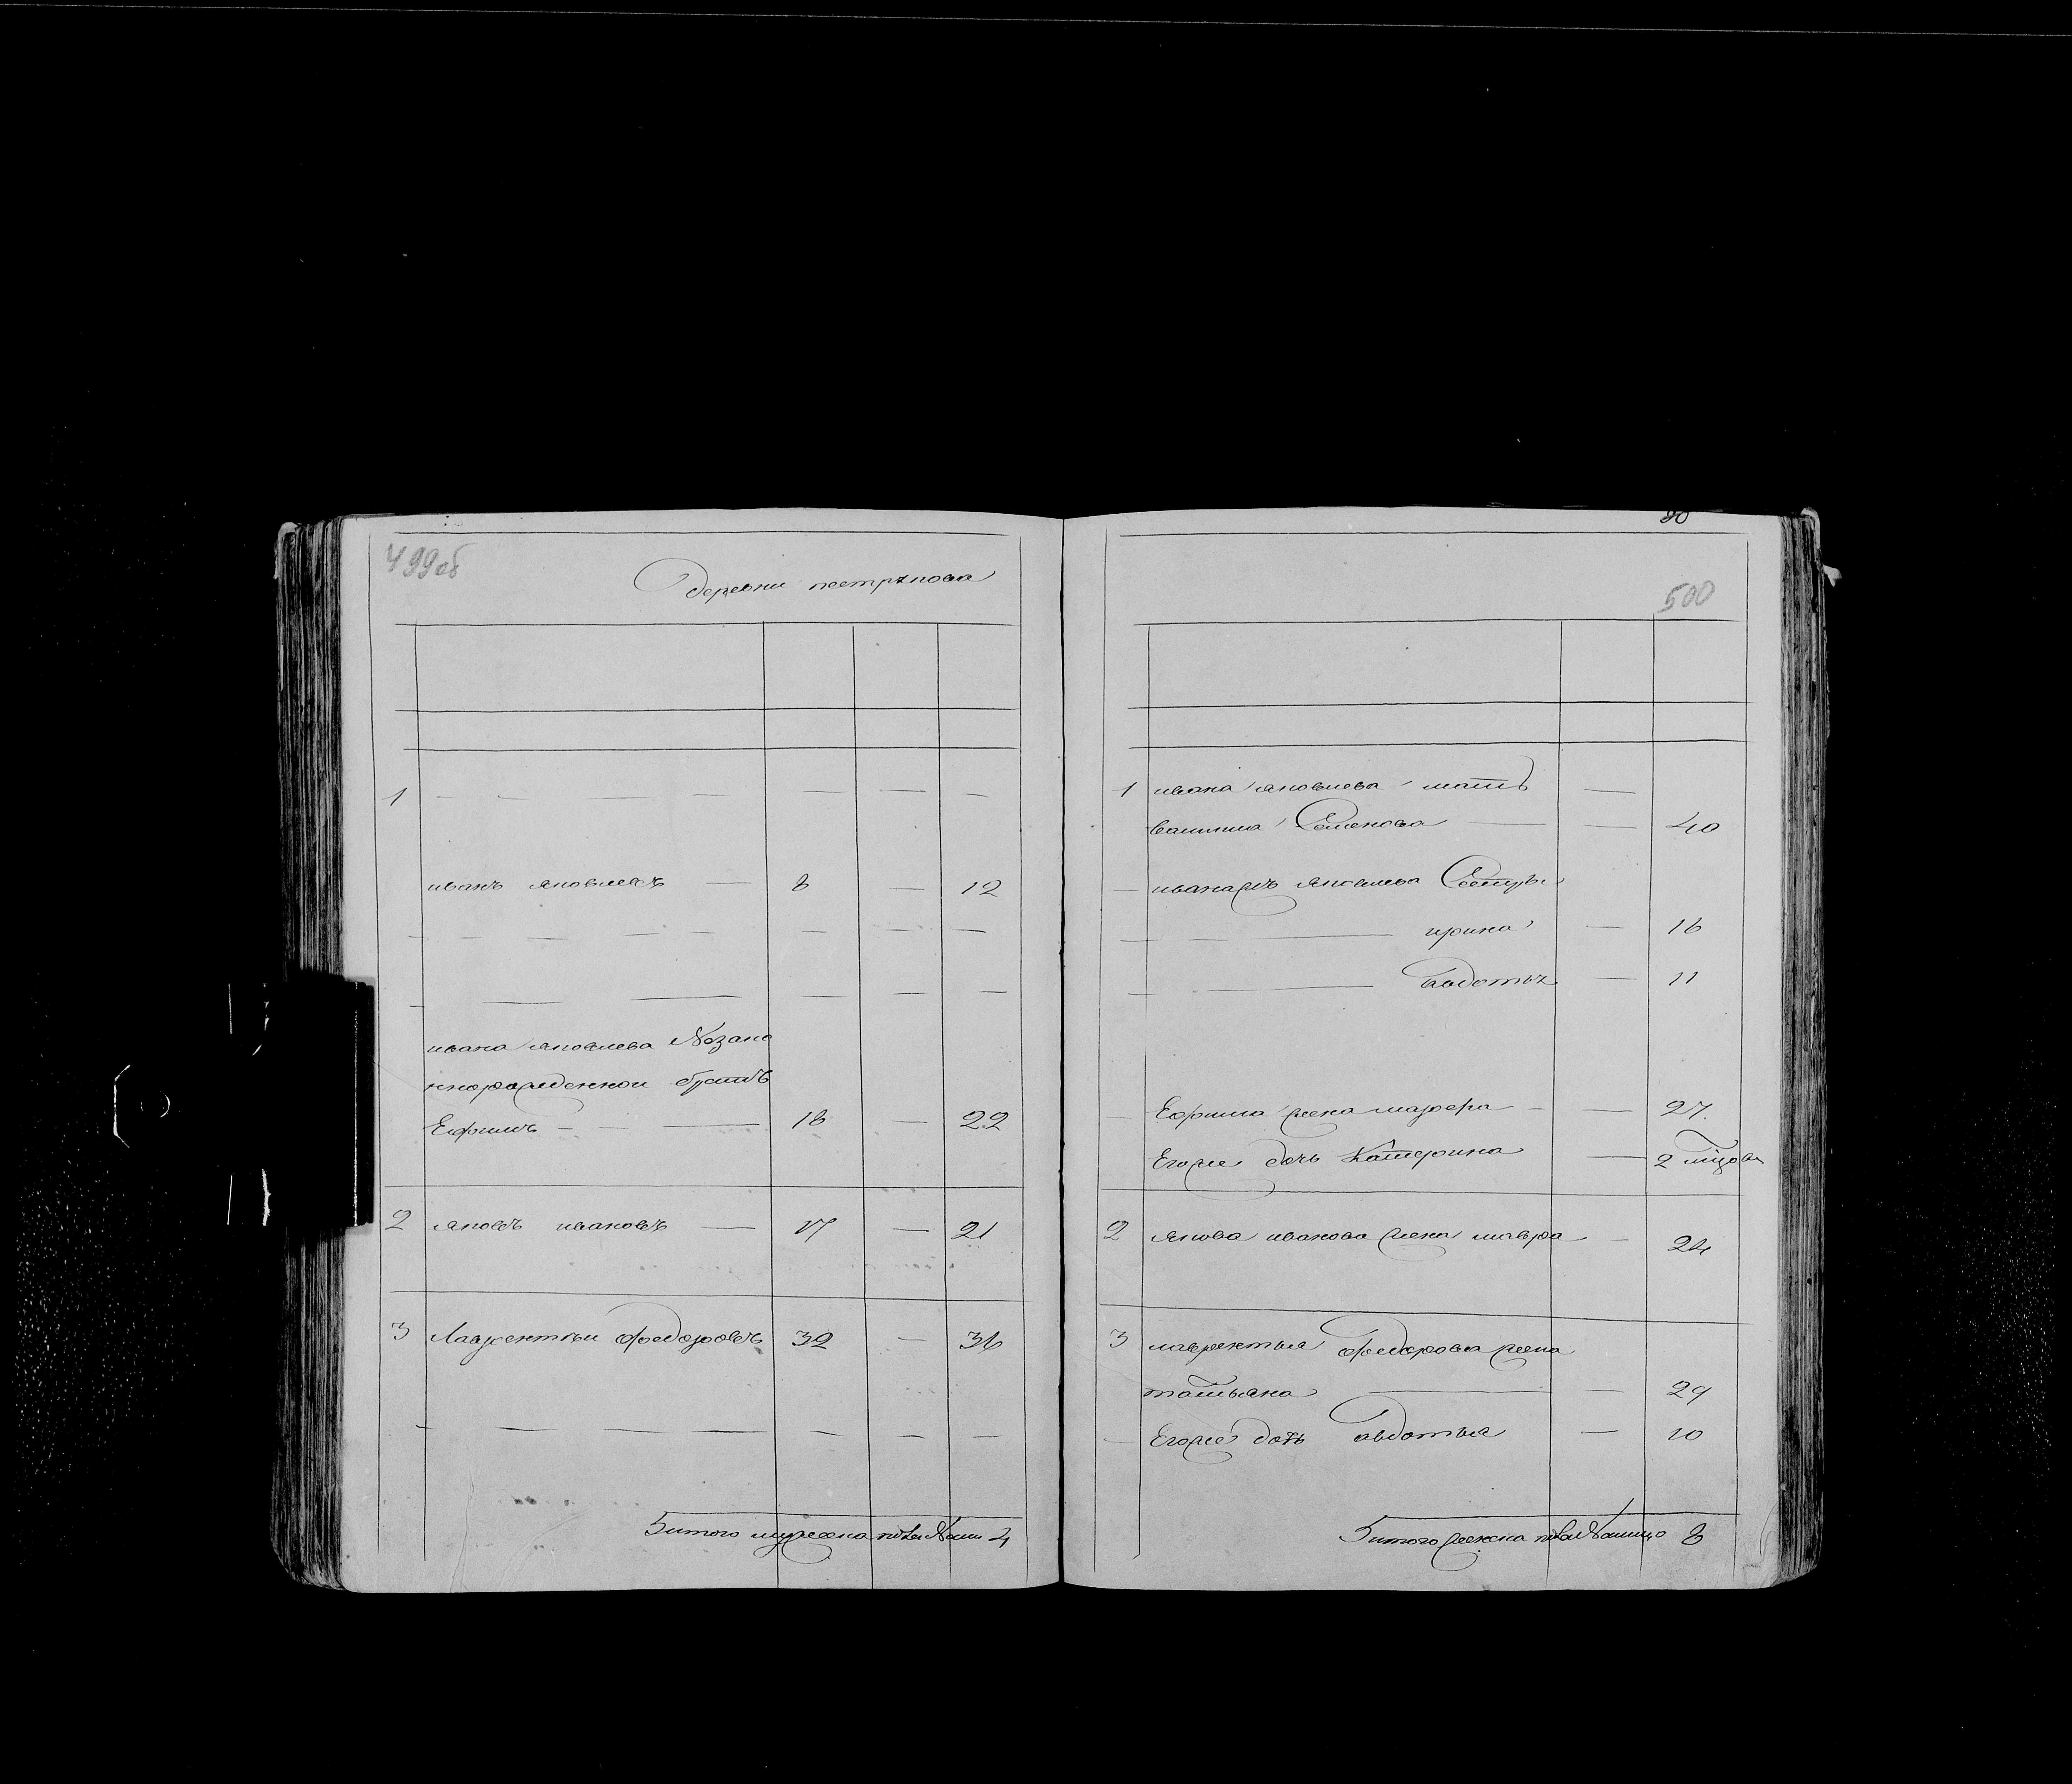 499об
деревни пестрякова
1 — — — — — — —
иванъ яковлевъ — 8 — 12
— — — — — — — —
— — — — — —
ивана яковлева незако
ннорожденной братъ
Ефимъ — — — 18 — 22
2 яковъ ивановъ — 17 — 21
3 Лаврентьи федоровъ 32 — 36
— — — — — — —
итого мужеска полу 4
500
1 ивана яковлева мать —
Семенова — — 40
— иванажъ яковлева Сестры
— — — ирина — 16
— — — авдотья — 11
— Ефима жена — — 27.
Егоже дочь Катерина — 2
2 якова иванова жена мавра — 24
3 лаврентья федорова жена
татьяна — — 29
— Егоже дочь авдотья — 10
итого женска пола 8